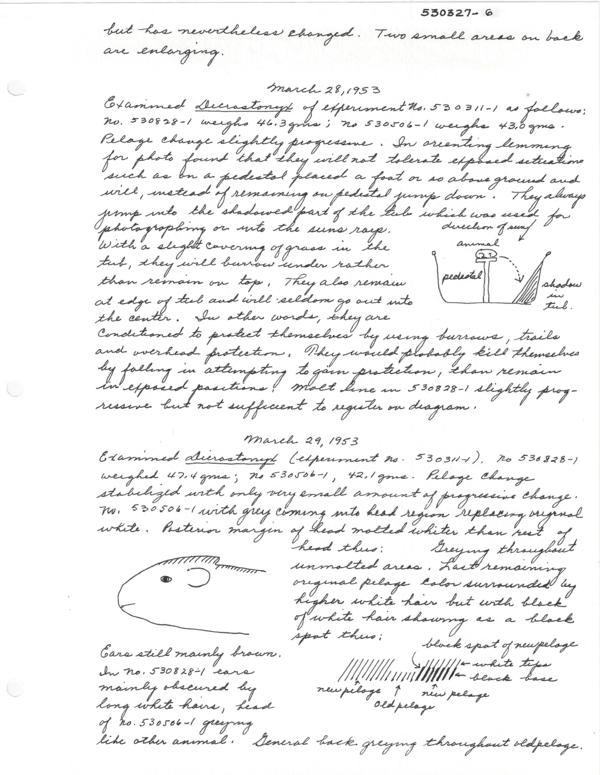 530327-6
but has nevertheless changed. Two small areas on back
are enlarging.
March 28, 1953
Examined Dicrostonyx of experiment No. 530311-1 as follows:
No. 530828-1 weighs 46.3 gms; no 530506-1 weighs 43.0 gms.
Pelage change slightly progressive. In orienting lemming
for photo found that they will not tolerate exposed situations
such as on a pedestal placed a foot or so above ground and
will, instead of remaining on pedestal jump down. They always
jump into the shadowed part of the tub which was used for
photographing or into the suns rays.
With a slight covering of grass in the
tub, they will burrow under rather
than remain on top. They also remain
at edge of tub and will seldom go out into
the center. In other words, they are
conditioned to protect themselves by using burrows, trails
and overhead protection. They would probably kill themselves
by falling in attempting to gain protection, than remain
in exposed positions. Molt line in 530828-1 slightly prog-
ressive but not sufficient to register on diagram.
direction of sun
animal
pedestal
shadow
in
tub.
March 29, 1953
Examined Dicrostonyx (experiment no. 530311-1). No 530828-1
weighed 47.4 gms; no 530506-1, 42.1 gms. Pelage change
stabilized with only very small amount of progressive change.
No. 530506-1 with grey coming into head region replacing original
white. Posterior margin of head molted whiter than rest of
head thus: Greying throughout
unmolted areas. Last remaining
original pelage color surrounded by
higher white hair but with black
of white hair showing as a black
spot thus:
Ears still mainly brown.
In no. 530828-1 ears
mainly obscured by
long white hairs, head
of no. 530506-1 greying
like other animal. General back greying throughout old pelage.
black spot of new pelage
white tips
black base
new pelage
old pelage
new pelage